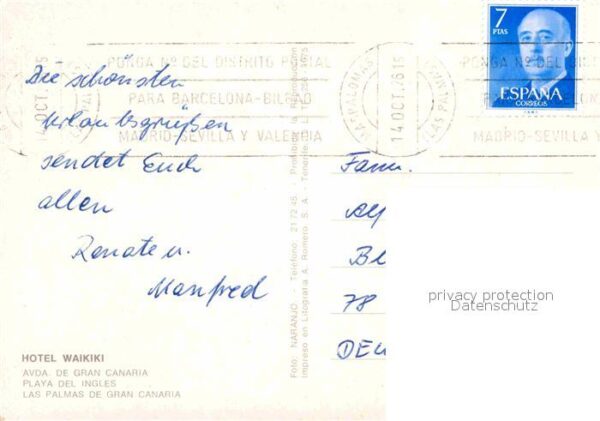 7
PTAS
ESPAÑA
CORREOS
PONGA Nº DEL DISTRITO POSTAL
PARA BARCELONA-BILBAO
MADRID-SEVILLA Y VALENCIA
14 OCT.
MASPALOMAS
14 OCT. 76 15
(LAS PALMAS)
PONGA Nº DEL DIST
PARA B
MADRID-SEVILLA Y V
Die schönsten
Urlaubsgrüßen
sendet Euch
allen
Renate u.
Manfred
Fam.
Al
Bl
78
DEU
privacy protection
Datenschutz
Foto: NARANJO - Teléfono: 21 72 45 - Prohibida la reproducción
Impreso en Litografía A. Romero, S. A. - Tenerife
HOTEL WAIKIKI
AVDA. DE GRAN CANARIA
PLAYA DEL INGLES
LAS PALMAS DE GRAN CANARIA